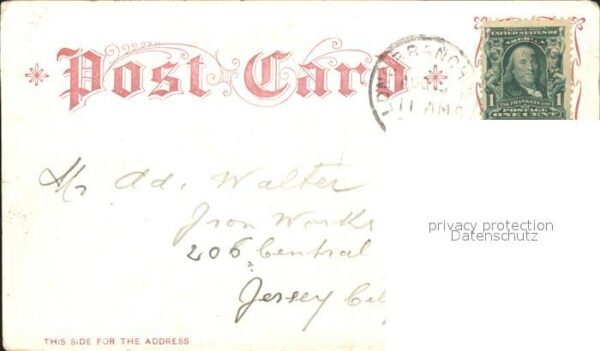 Post Card
LONG BRANCH
11 AM
UNITED STATES OF
AMERICA
1 FRANKLIN 1
POSTAGE
ONE CENT
Mr Ad. Walter
Iron Works
206 Central
Jersey City
privacy protection
Datenschutz
THIS SIDE FOR THE ADDRESS